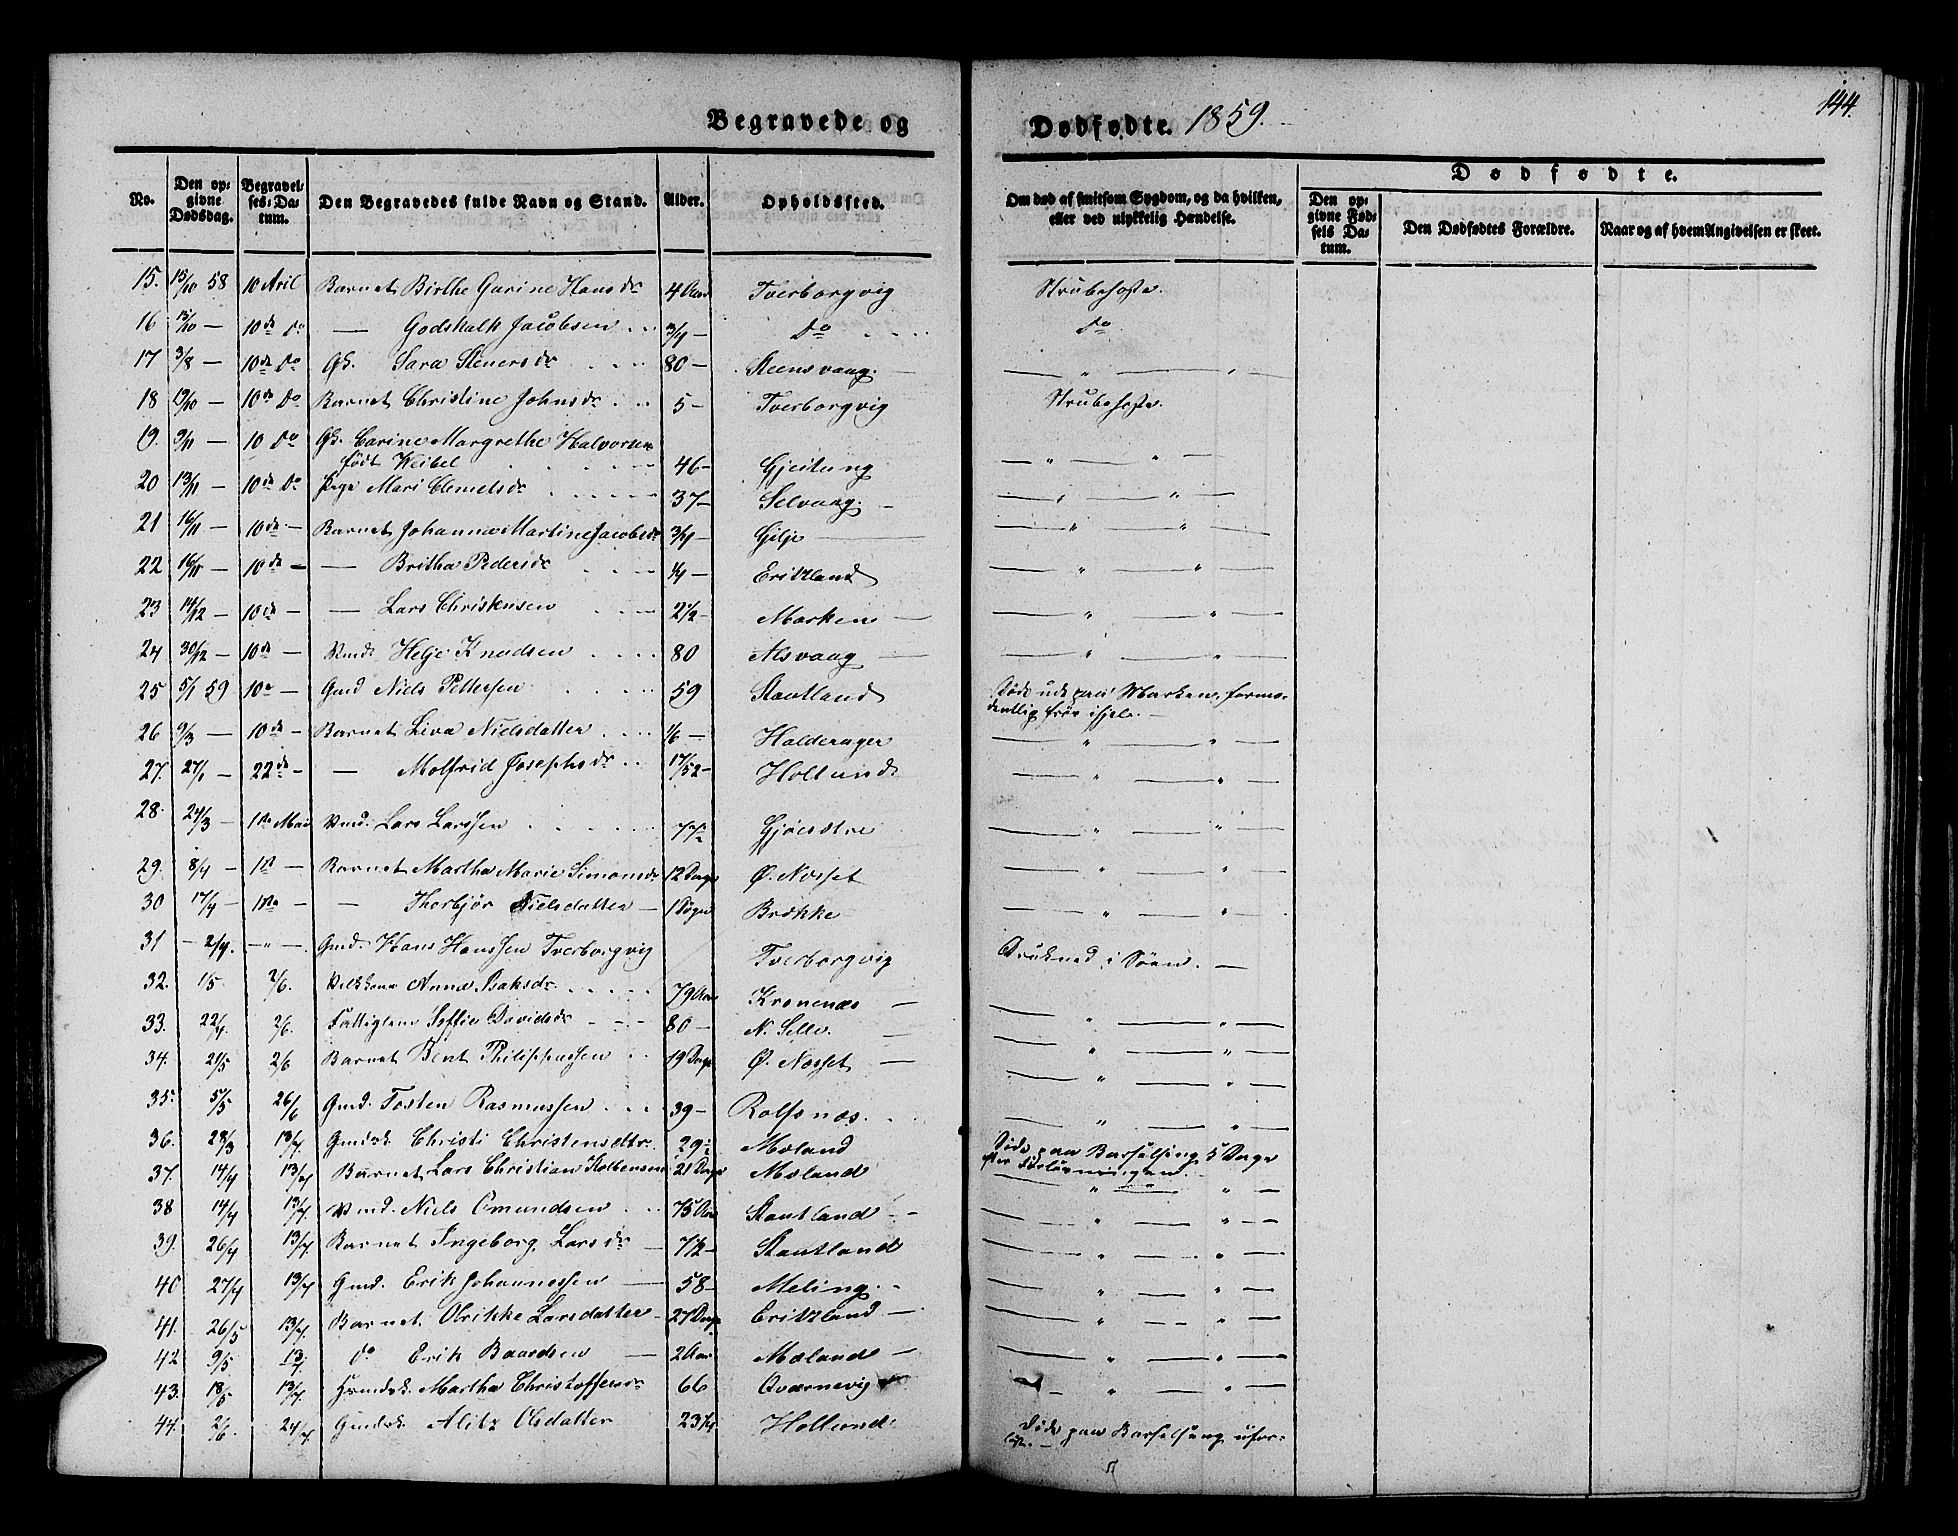 Begravede og Dødfødte. 1859.
144.
No. Den opgivne Dødsdag. Begravelses-Datum. Den Begravedes fulde Navn og Stand. Alder. Opholdssted. Om død af smitsom Sygdom, og da hvilken, eller ved ulykkelig Hændelse. Dødfødte. Den opgivne Fødsels Datum. Den Dødfødtes Forældre. Naar og af hvem Angivelsen er skeet.
15. 15/10 58 10 April Barnet Birthe Garine Hansdr 4 Aar Tverborgvig Strubehoste.
16 15/10 — 10de Do — Godskalk Jacobsen 3/4 — Do Do
17 3/8 — 10de Do Gk. Sara Stenersdr 80 — Steensvaag. — " — "
18 19/10 — 10de Do Barnet Christine Johnsdr 5 — Tverborgvig Strubehoste.
19. 9/11 — 10 Do Gk. Carine Margrethe Halvorsen
født Weibel 46 — Gjeitung — " — " —
20 13/11 — 10de Do Pige Mari Clemetsdr 37 — Selvaag — " — " —
21 16/11 — 10de — Barnet Johanne Martine Jacobsdr 3/4 — Gilje — " — " —
22 16/11 — 10de — — Britha Pedersdr 1/4 — Eritzland — " — " —
23 14/12 — 10de — — Lars Christensen 2 1/2 — Marken — " — " —
24 30/12 — 10de — Kmd. Helje Knudsen 80 Alsvaag — " — " —
25 5/1 59 10e — Gmd Niels Pettersen 59 Stautland Døde ude paa Marken, formo-
dentlig frøs ihjel. —
26 9/3 — 10de — Barnet Liva Nielsdatter 1/6 — Halderager — " — " —
27. 27/1 — 22de — — Molfrid Josephsdr 17/52 — Hollund — " — " —
28. 24/3 — 1ste Mai Kmd. Lars Larssen 77 Gjøesætre — " — " —
29. 8/4 — 1st — Barnet Martha Marie Simonsdr 12 Dage Ø. Nesset — " — " —
30 17/4 — 1ste — — Thorbjør Nielsdatter — 1 Døgn Brække — " — " —
31 — 2/4. — " — Gmd. Hans Hanssen Tverborgvig Tverborgvig Drukned i Søen. —
32. 1/5 2/6. Anna Isaksdr 79 Aar Kronenæs — " — " —
33. 22/4 2/6. Fattiglem Soffie Davidsdr 80 — N. Selle. — " — " —
34. 21/5 2/6 Barnet Bent Philippussen 19 Dage Ø. Nesset — " — " —
35. 5/5 26/6 Gmd. Tosten Rasmussen 39 — Rolfsnæs. — " — "
36. 28/3 13/7. Gmdsk. Christi Christensdtr. 29 Mæland Døde paa Barselseng 5 Dage
efter Forløsningen.
37. 14/4 13/7 Barnet Lars Christian Kolbensen 21 Dage Mæland — " — " —
38 14/4 13/7. Kmd. Niels Omundsen 75 Aar Stautland — " — " —
39. 26/4 13/7 Barnet Ingeborg Larsdr — 7 1/2 — Stautland — " — " —
40 27/4 13/7 Gmd. Erik Johannessen — 58 — Meling. — " — " —
41. 26/5 13/7. Barnet Olrikke Larsdatter 27 Dage Eritzland — " — " —
42 9/5 13/7 do Erik Baardsen — 2 Aar Mæland — " — " —
43. 18/5 13/7. Martha Christoffersdr 66 Qvernevig — " — " —
44. 2/6 24/7. Gmdsk. Alitz Olsdatter 23 1/4 Hollund Døde paa Barselseng ufor-
løst. —